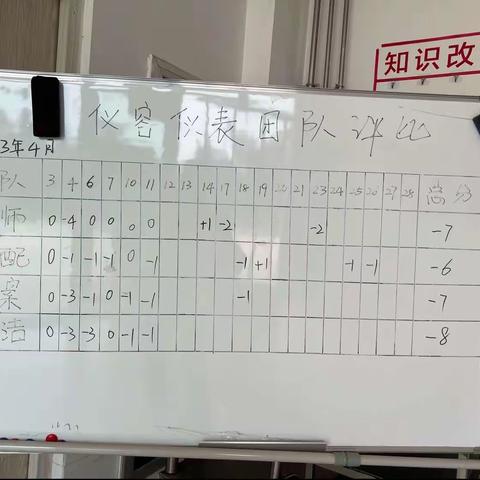 知识改
仪容仪表团队评比
3年4月
队 3 4 6 7 10 11 12 13 14 17 18 19 20 21 23 24 25 26 27 28 总分
师 0 -4 0 0 0 0 +1 -2 -2 -7
配 0 -1 -1 -1 0 -1 -1 +1 -1 -1 -6
案 0 -3 -1 0 -1 -1 -1 -7
洁 0 -3 -3 0 -1 -1 -8